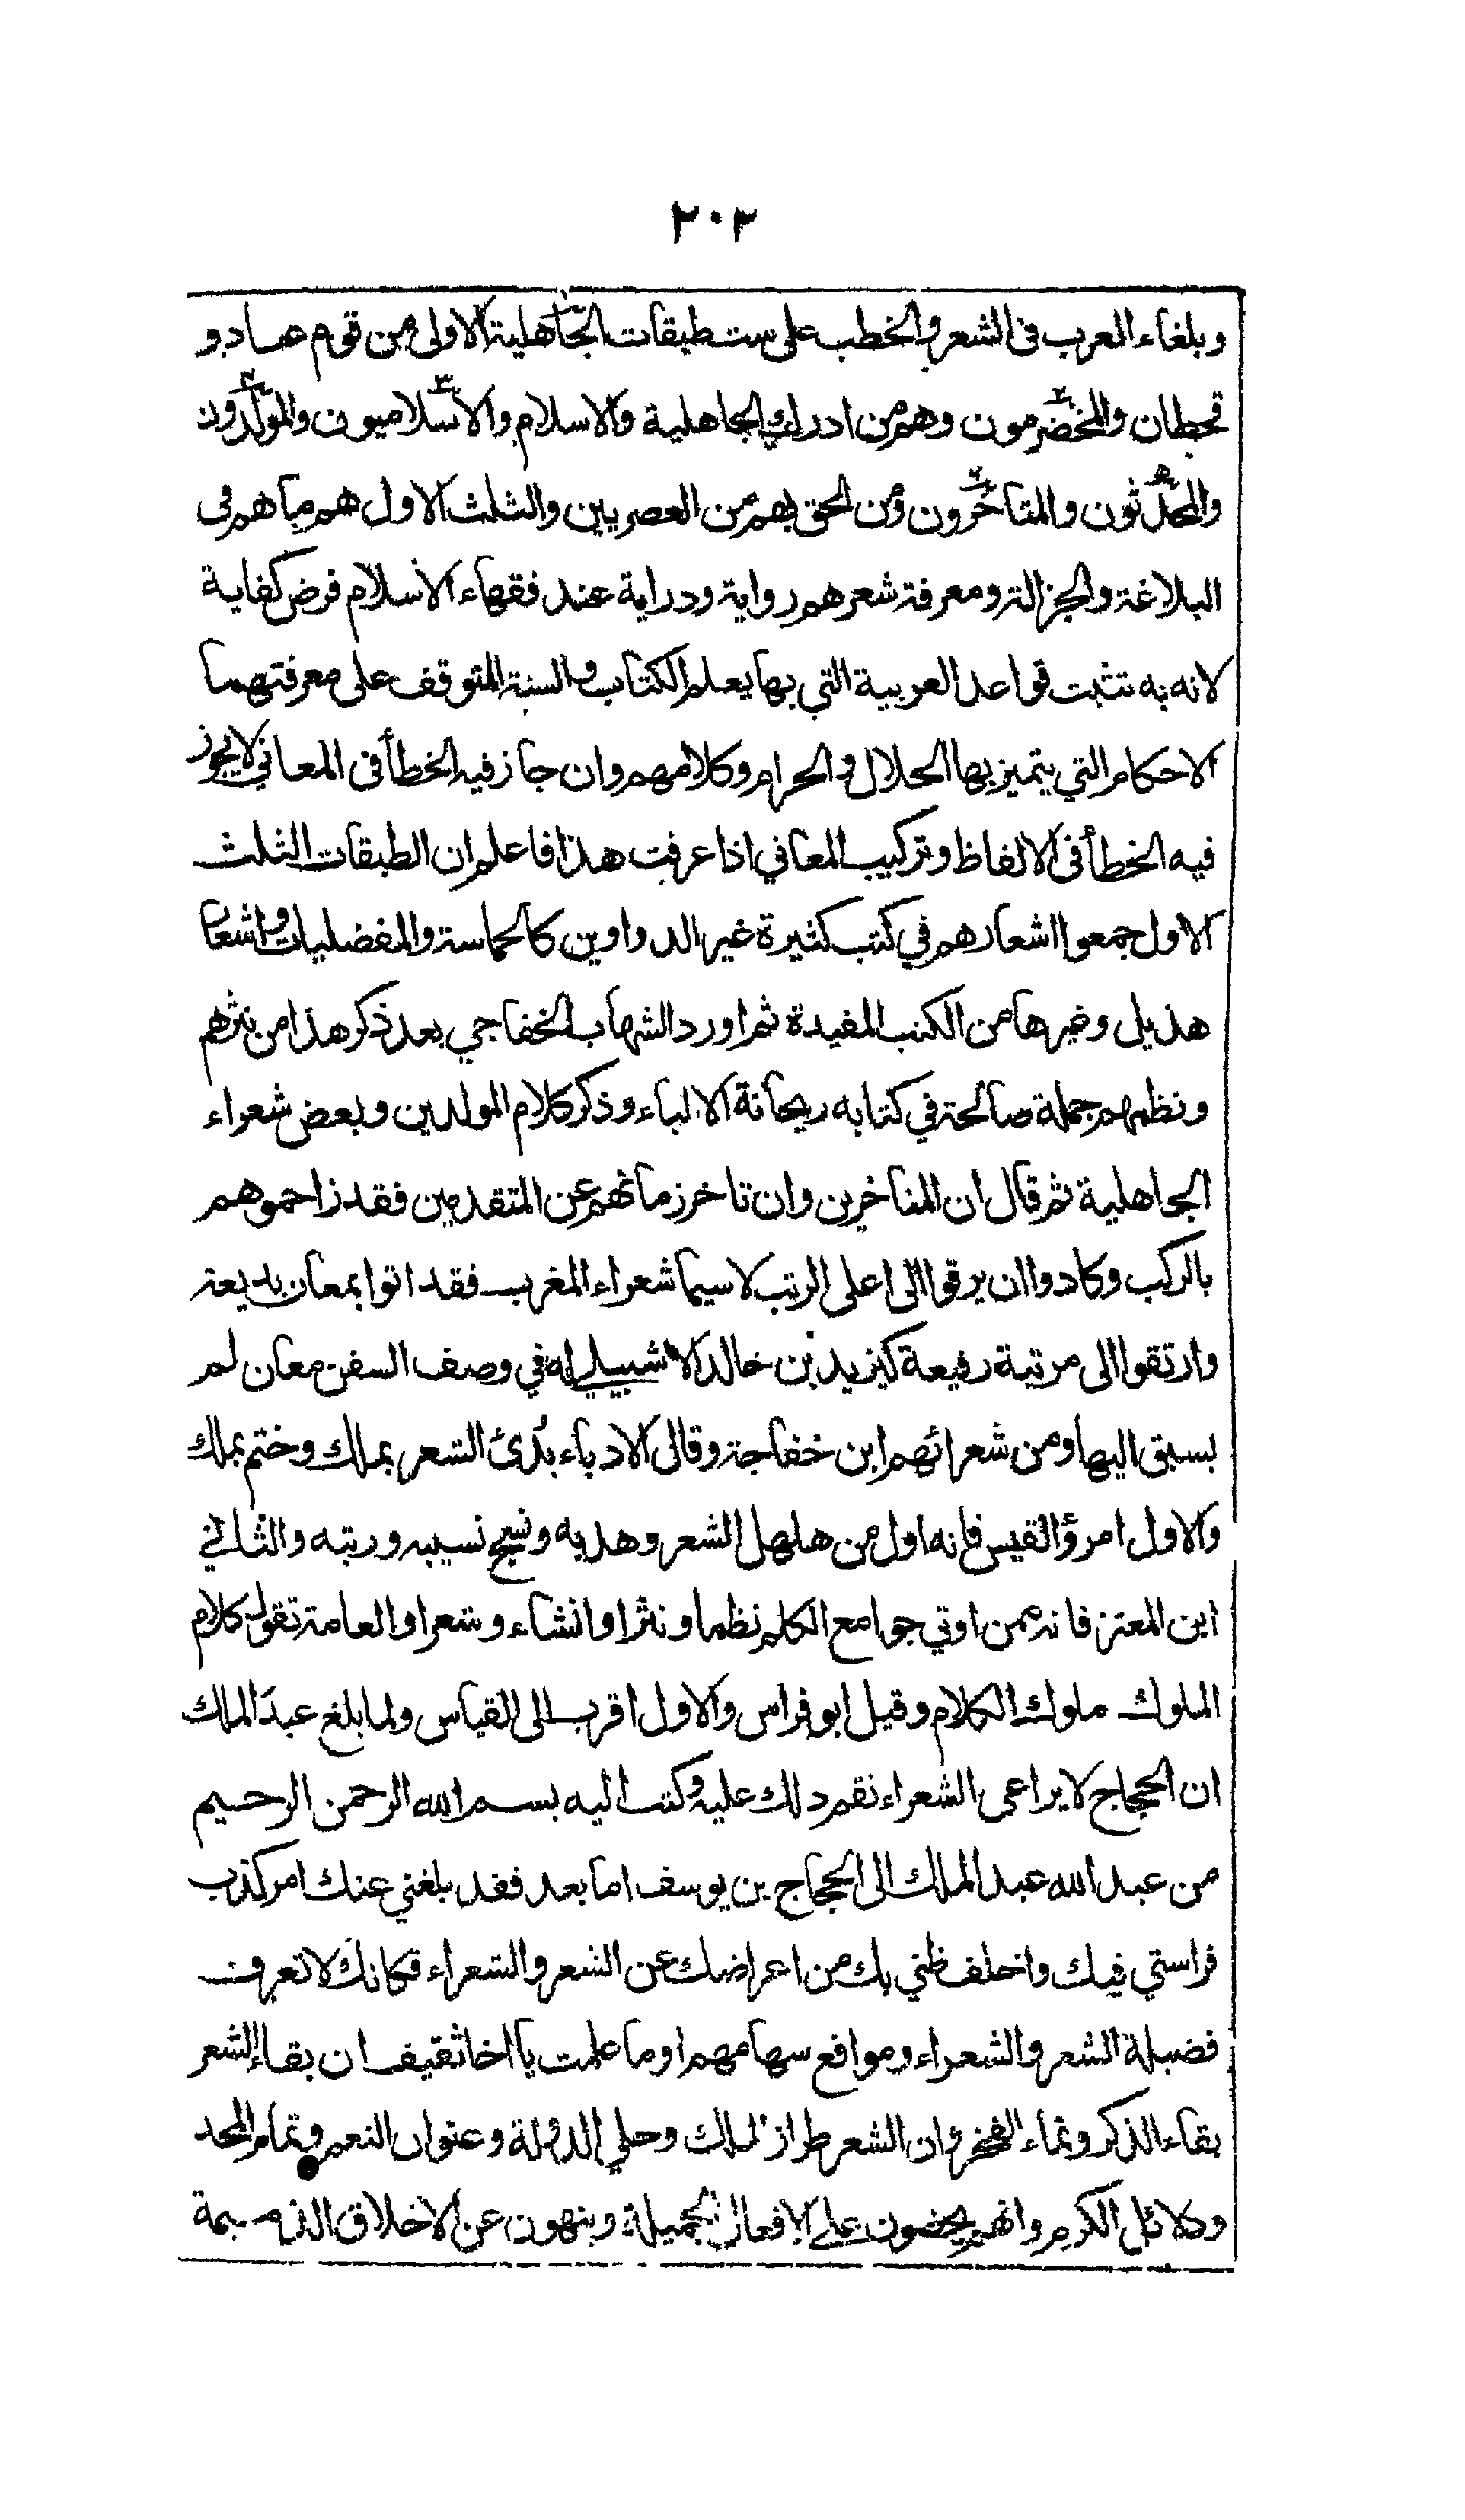 ٢٠٣
وبلغاء العرب فى الشعر والخطب على ست طبقات الجاهلية الاولى من قوم عاد و
قحطان والمخضرمون وهم من ادرك الجاهلية والاسلام والاسلاميون والمولّدون
والمحدّثون والمتأخّرون ومن لحق بهم من العصريين والثلث الاول هم ما هم فى
البلاغة والجزالة ومعرفة شعرهم رواية ودراية عند فقهاء الاسلام فرض كفاية
لانه به تثبت قواعد العربية التي بها يعلم الكتاب والسنة المتوقف على معرفتهما
الاحكام التي يتميز بها الحلال والحرام وكلامهم وان جاز فيه الخطأ فى المعاني لا يجوز
فيه الخطأ فى الالفاظ وتركيب المعاني اذا عرفت هذا فاعلم ان الطبقات الثلث
الاول جمعوا اشعارهم في كتب كثيرة غير الدواوين كالحماسة والمفضليات واشعار
هذيل وغيرها من الكتب المفيدة ثم اورد الشهاب الخفاجي بعد ذكر هذا من نثرهم
ونظمهم جملة صالحة في كتابه ريحانة الالباء وذكر كلام المولدين وبعض شعراء
الجاهلية ثم قال ان المتاخرين وان تاخر زمانهم عن المتقدمين فقد زاحموهم
بالركب وكادوا ان يرقوا الى اعلى الرتب لا سيما شعراء المغرب فقد اتوا بمعان بديعة
وارتقوا الى مرتبة رفيعة كيزيد بن خالد الاشبيلي له في وصف السفن معان لم
يسبق اليها ومن شعرائهم ابن خفاجة وقال الادباء بُدئ الشعر بملك وختم بملك
والاول امرؤ القيس فانه اول من هلهل الشعر وهذبه ونسج نسيبه ورتبه والثاني
ابن المعتز فانه ممن اوتي جوامع الكلم نظما ونثرا وانشاء وشعرا والعامة تقول كلام
الملوك ملوك الكلام وقيل ابو فراس والاول اقرب الى القياس ولما بلغ عبدَ الملك
ان الحجاج لا يراعى الشعراء نقم ذلك عليه وكتب اليه بسم الله الرحمن الرحيم
من عبد الله عبد الملك الى الحجاج بن يوسف اما بعد فقد بلغني عنك امر كذب
فراستي فيك واخلف ظني بك من اعراضك عن الشعر والشعراء فكانك لا تعرف
فضيلة الشعر والشعراء ومواقع سهامهم اوما علمت يا اخا ثقيف ان بقاء الشعر
بقاء الذكر ونماء الفخر وان الشعر طراز الملك وحلي الدولة وعنوان النعم وتمام المجد
ودلائل الكرم وانهم يحضون على الافعال الجميلة وينهون عن الاخلاق الذميمة